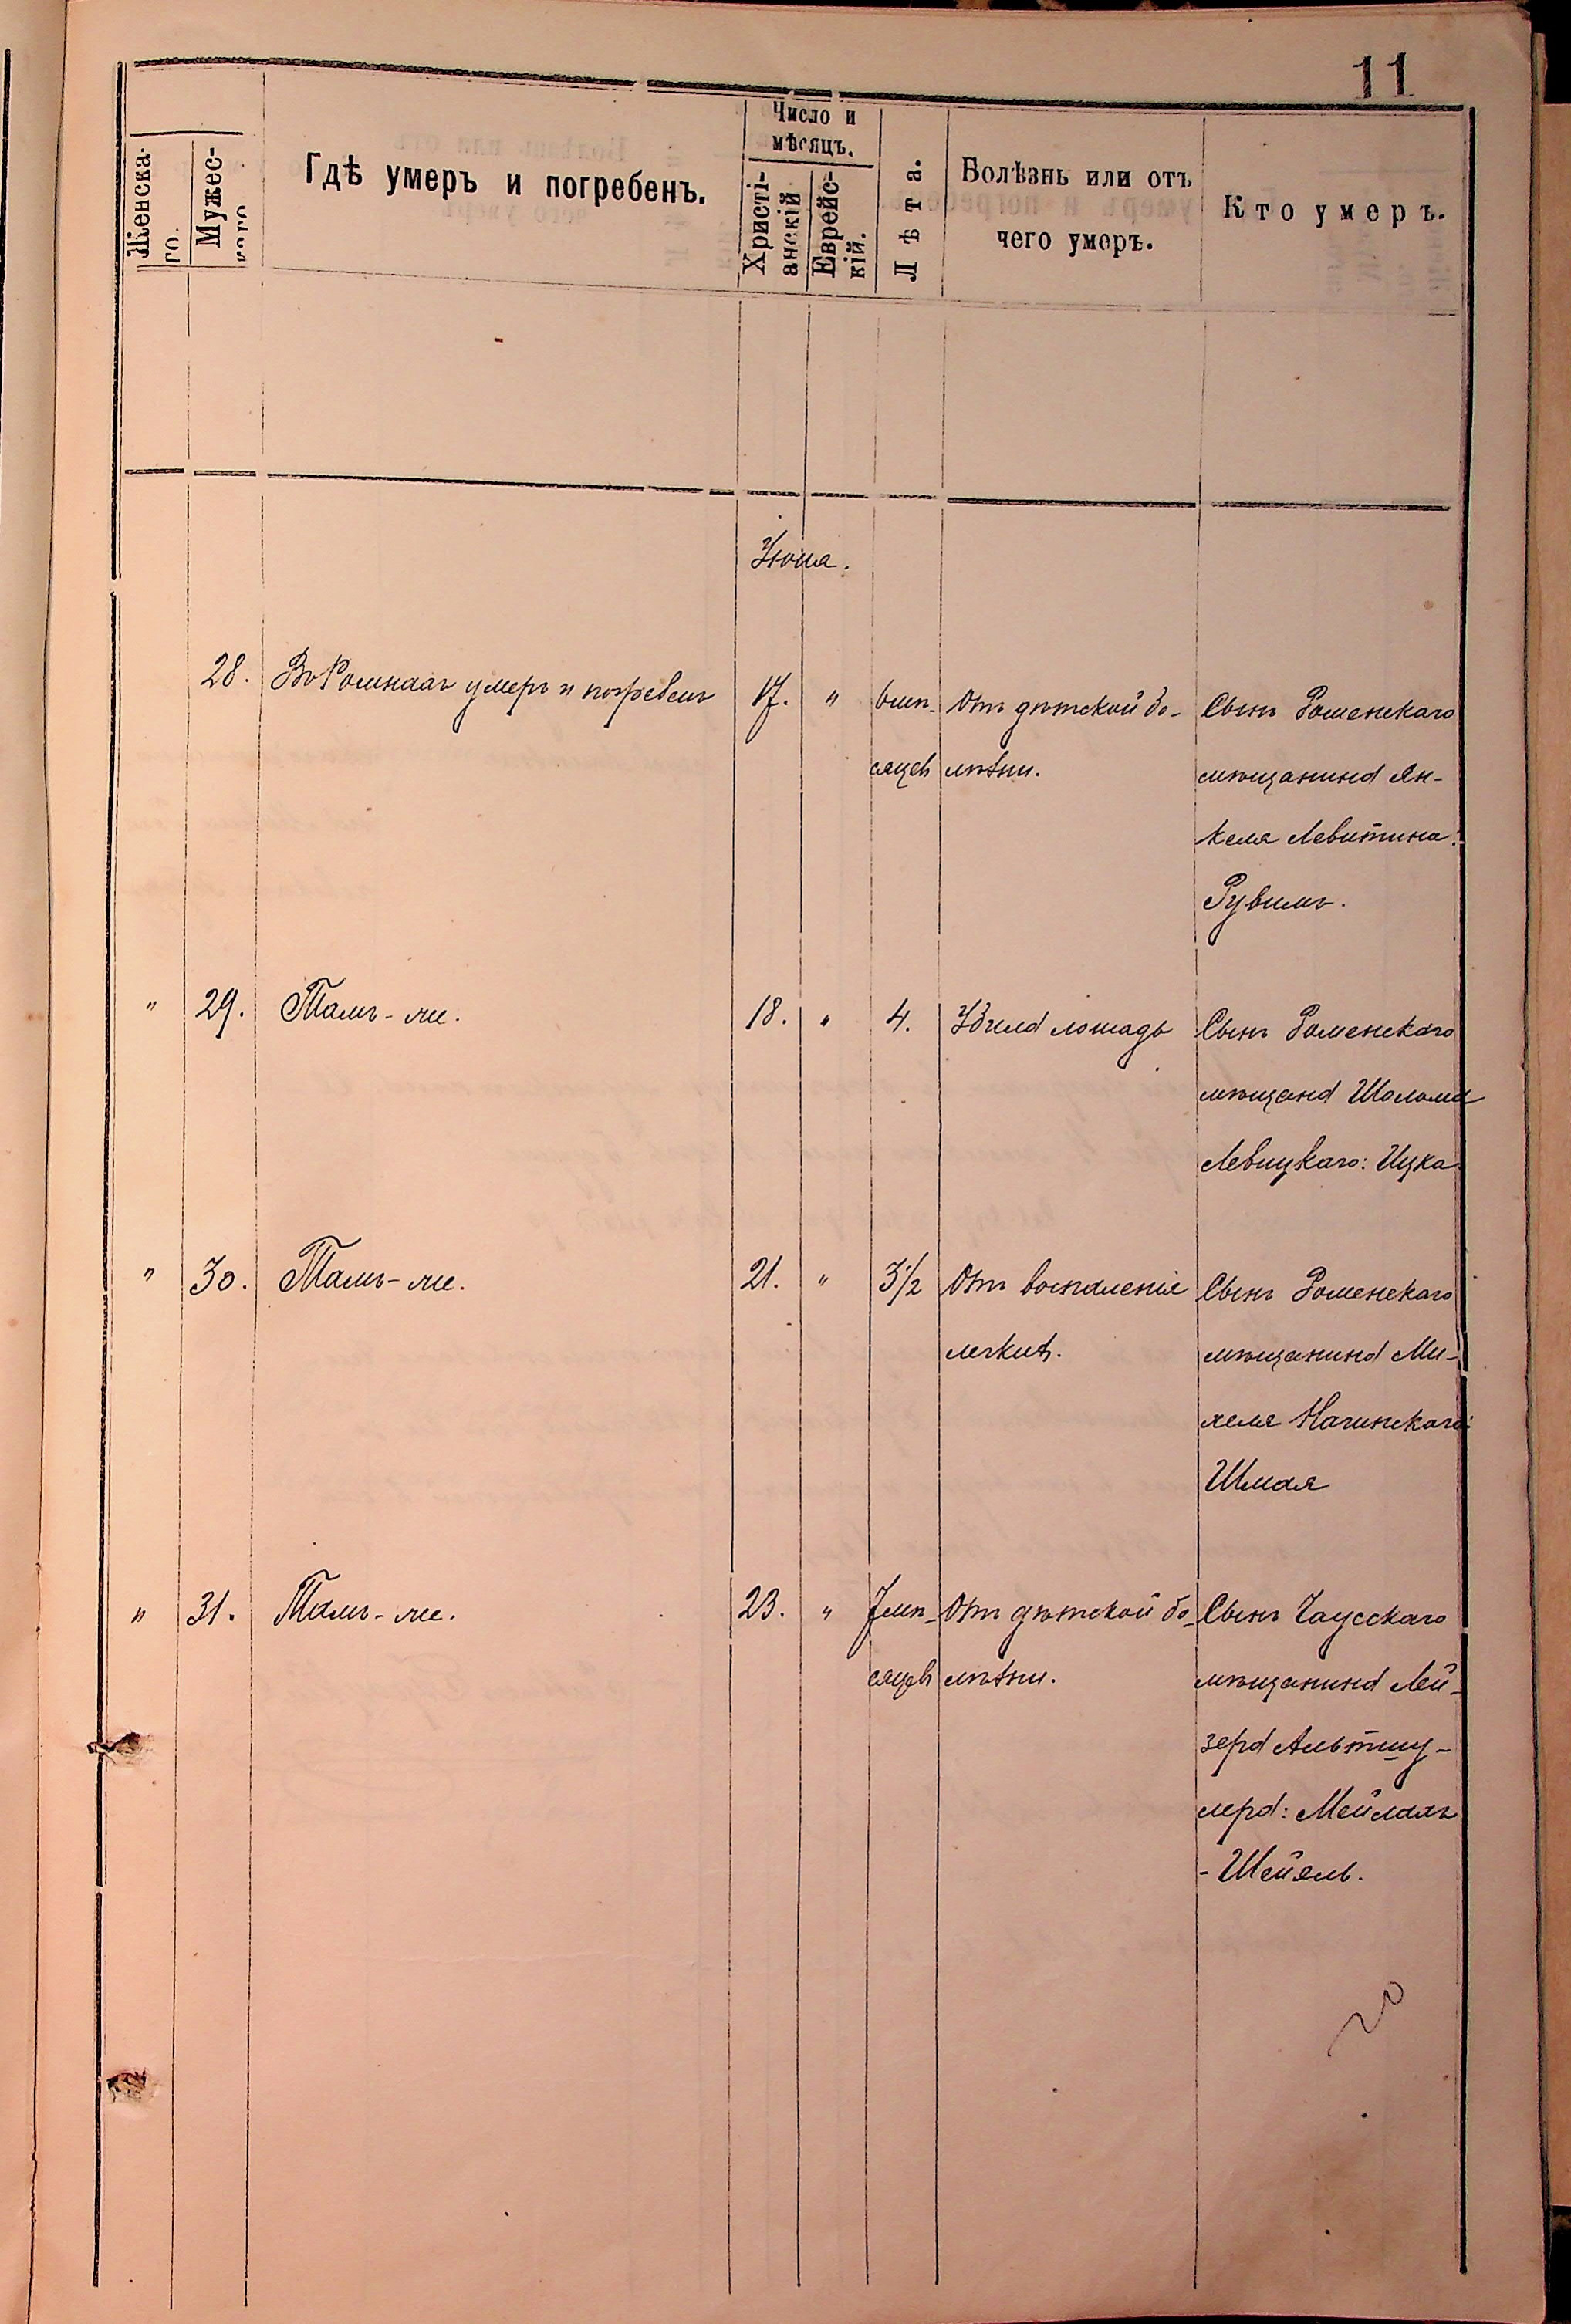 11
Женска-
го.
Мужес-
каго
Гдѣ умеръ и погребенъ.
Число и
мѣсяцъ.
Христі-
анскій
Еврейс-
кій.
Лѣта.
Болѣзнь или отъ
чего умеръ.
Кто умеръ.
Іюня.
28. Въ Ромнахъ умеръ и погребенъ 17. " 6 мѣ- Отъ дѣтской бо- Сынъ Роменскаго
сяцев лѣзни. мѣщанина Ян-
келя Левитина:
Рувимъ.
" 29. Тамъ-же. 18. " 4. Убила лошадь Сынъ Роменскаго
мѣщана Шолома
Левицкаго: Ицка
" 30. Тамъ-же. 21. " 3 1/2 Отъ воспаленіе Сынъ Роменскаго
легких. мѣщанина Ми-
хеля Нагинскаго:
Шмая
" 31. Тамъ-же. 23. " 7 мѣ- Отъ дѣтской бо- Сынъ Чаусскаго
сяцев лѣзни. мѣщанина Лей-
зера Альтшу-
лера: Мейлахъ
-Шейель.
20